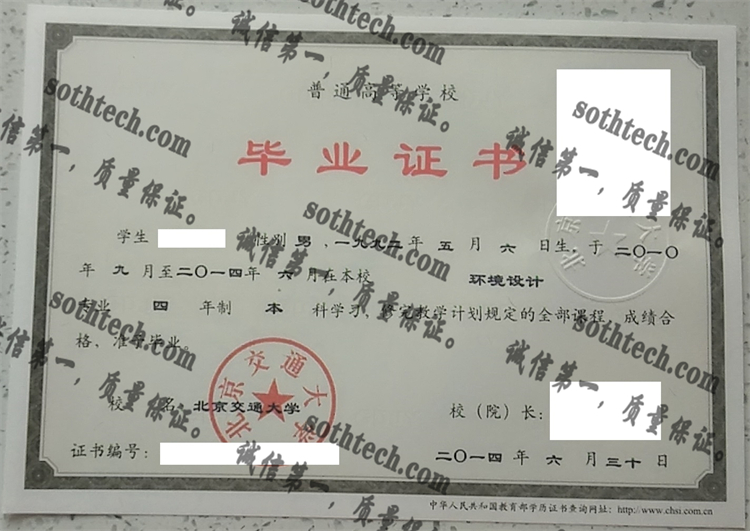 普通高等学校
毕业证书
学生 性别 男，一九九二年 五 月 六 日生，于 二〇一〇
年 九 月至二〇一四年 六 月在本校 环境设计
专业 四 年制 本 科学习，修完教学计划规定的全部课程，成绩合
格，准予毕业。
校 名：北京交通大学
校（院）长：
证书编号：
二〇一四 年 六 月 三十 日
中华人民共和国教育部学历证书查询网址：http://www.chsi.com.cn
北京交通大学
sothtech.com
诚信第一，质量保证。
sothtech.com
诚信第一，质量保证。
sothtech.com
诚信第一，质量保证。
sothtech.com
诚信第一，质量保证。
sothtech.com
诚信第一，质量保证。
sothtech.com
诚信第一，质量保证。
sothtech.com
诚信第一，质量保证。
sothtech.com
诚信第一，质量保证。